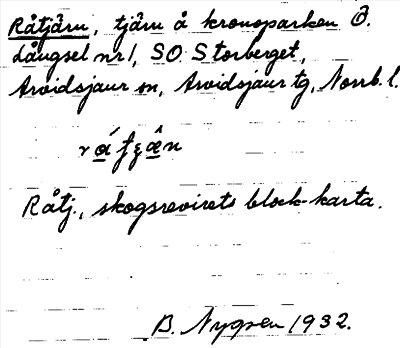 Råtjärn, tjärn å kronoparken Ö.
Långsel nr 1, SO Storberget,
Arvidsjaur sn, Arvidsjaur tg, Norrb. l.
Råtj., skogsrevirets block-karta.
B. Nygren 1932.